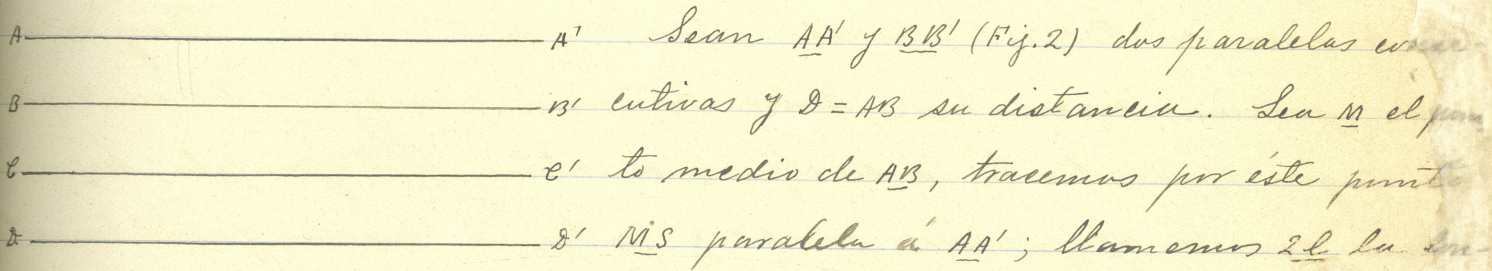 A A' Sean AA' y BB' (Fig. 2) dos paralelas conse-
B B' cutivas y D = AB su distancia. Sea M el pun
C C' to medio de AB, tracemos por éste punto
D D' MS paralela á AA'; llamemos 2l la lon-